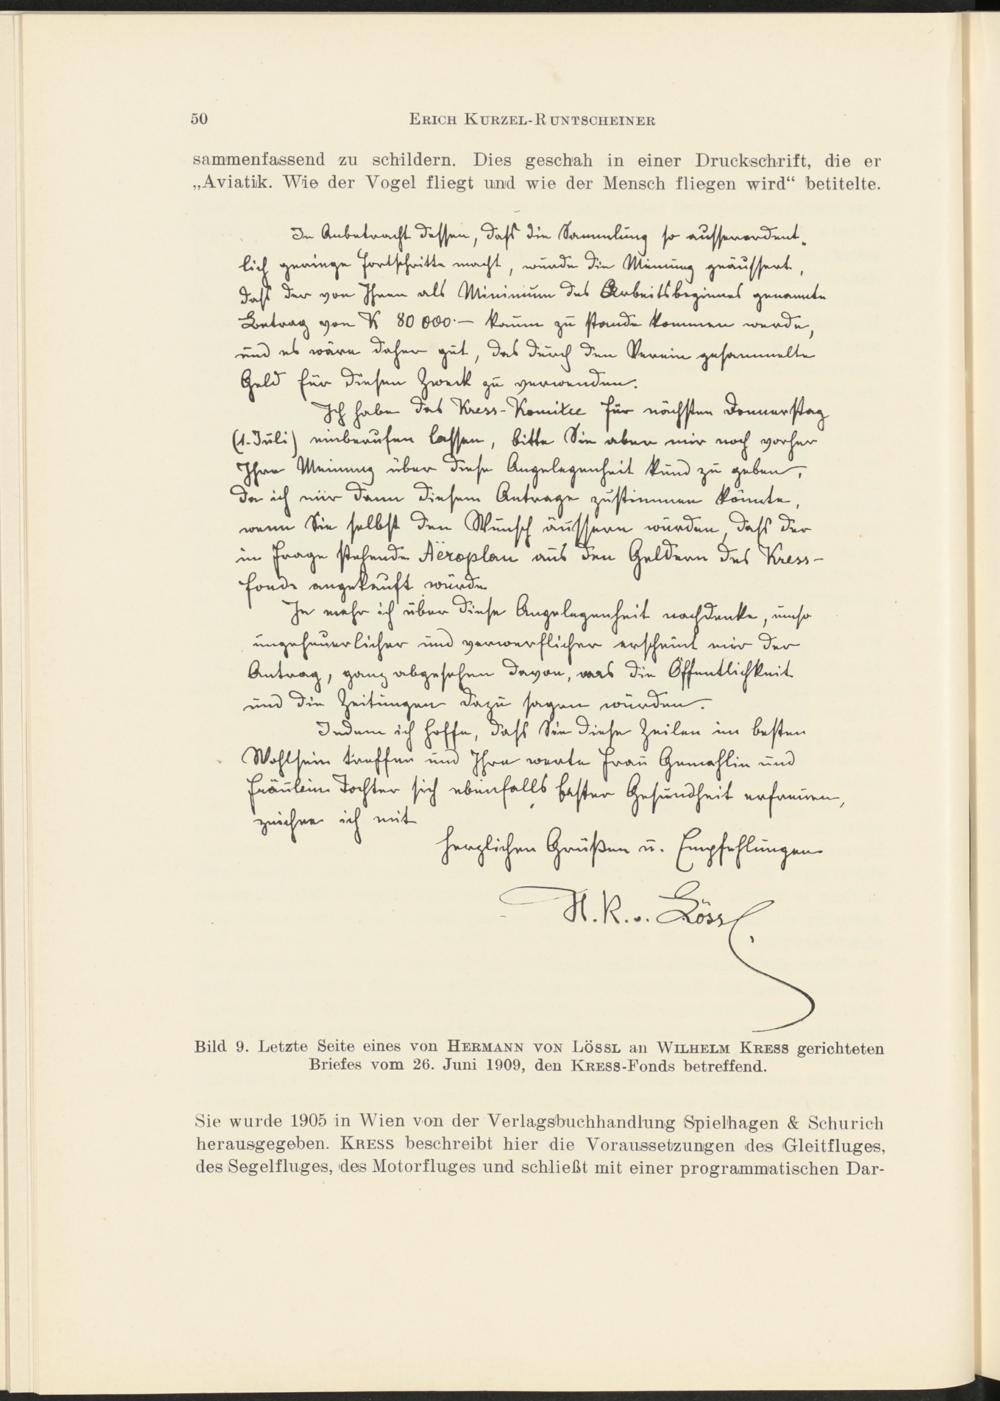 50
ERICH KURZEL-RUNTSCHEINER
sammenfassend zu schildern. Dies geschah in einer Druckschrift, die er
„Aviatik. Wie der Vogel fliegt und wie der Mensch fliegen wird“ betitelte.
In Anbetracht dessen, daſs die Sammlung so ausserordent-
lich geringe Fortschritte macht, wurde die Meinung geäussert,
daſs der von Ihnen als Minimum des Arbeitsbeginnes genannte
Betrag von K 80 000.— kaum zu stande kommen werde,
und es wäre daher gut, das durch den Verein gesammelte
Geld für diesen Zweck zu verwenden.
Ich habe das Kress-Komitee für nächsten Donnerstag
(1. Juli) einberufen lassen, bitte Sie aber mir noch vorher
Ihre Meinung über diese Angelegenheit kund zu geben,
da ich nur dann diesem Antrage zustimmen könnte,
wenn Sie selbst den Wunsch äussern würden, daſs der
in Frage stehende Aëroplan aus den Geldern des Kress-
fonds angekauft würde.
Je mehr ich über diese Angelegenheit nachdenke, umso
ungeheuerlicher und verwerflicher erscheint mir der
Antrag, ganz abgesehen davon, was die Öffentlichkeit
und die Zeitungen dazu sagen würden.
Indem ich hoffe, daſs Sie diese Zeilen im besten
Wohlsein treffen und Ihre werte Frau Gemahlin und
Fräulein Tochter sich ebenfalls bester Gesundheit erfreuen,
zeichne ich mit
herzlichen Grüßen u. Empfehlungen
H. R. v. Lössl.
Bild 9. Letzte Seite eines von HERMANN VON LÖSSL an WILHELM KRESS gerichteten
Briefes vom 26. Juni 1909, den KRESS-Fonds betreffend.
Sie wurde 1905 in Wien von der Verlagsbuchhandlung Spielhagen & Schurich
herausgegeben. KRESS beschreibt hier die Voraussetzungen des Gleitfluges,
des Segelfluges, des Motorfluges und schließt mit einer programmatischen Dar-